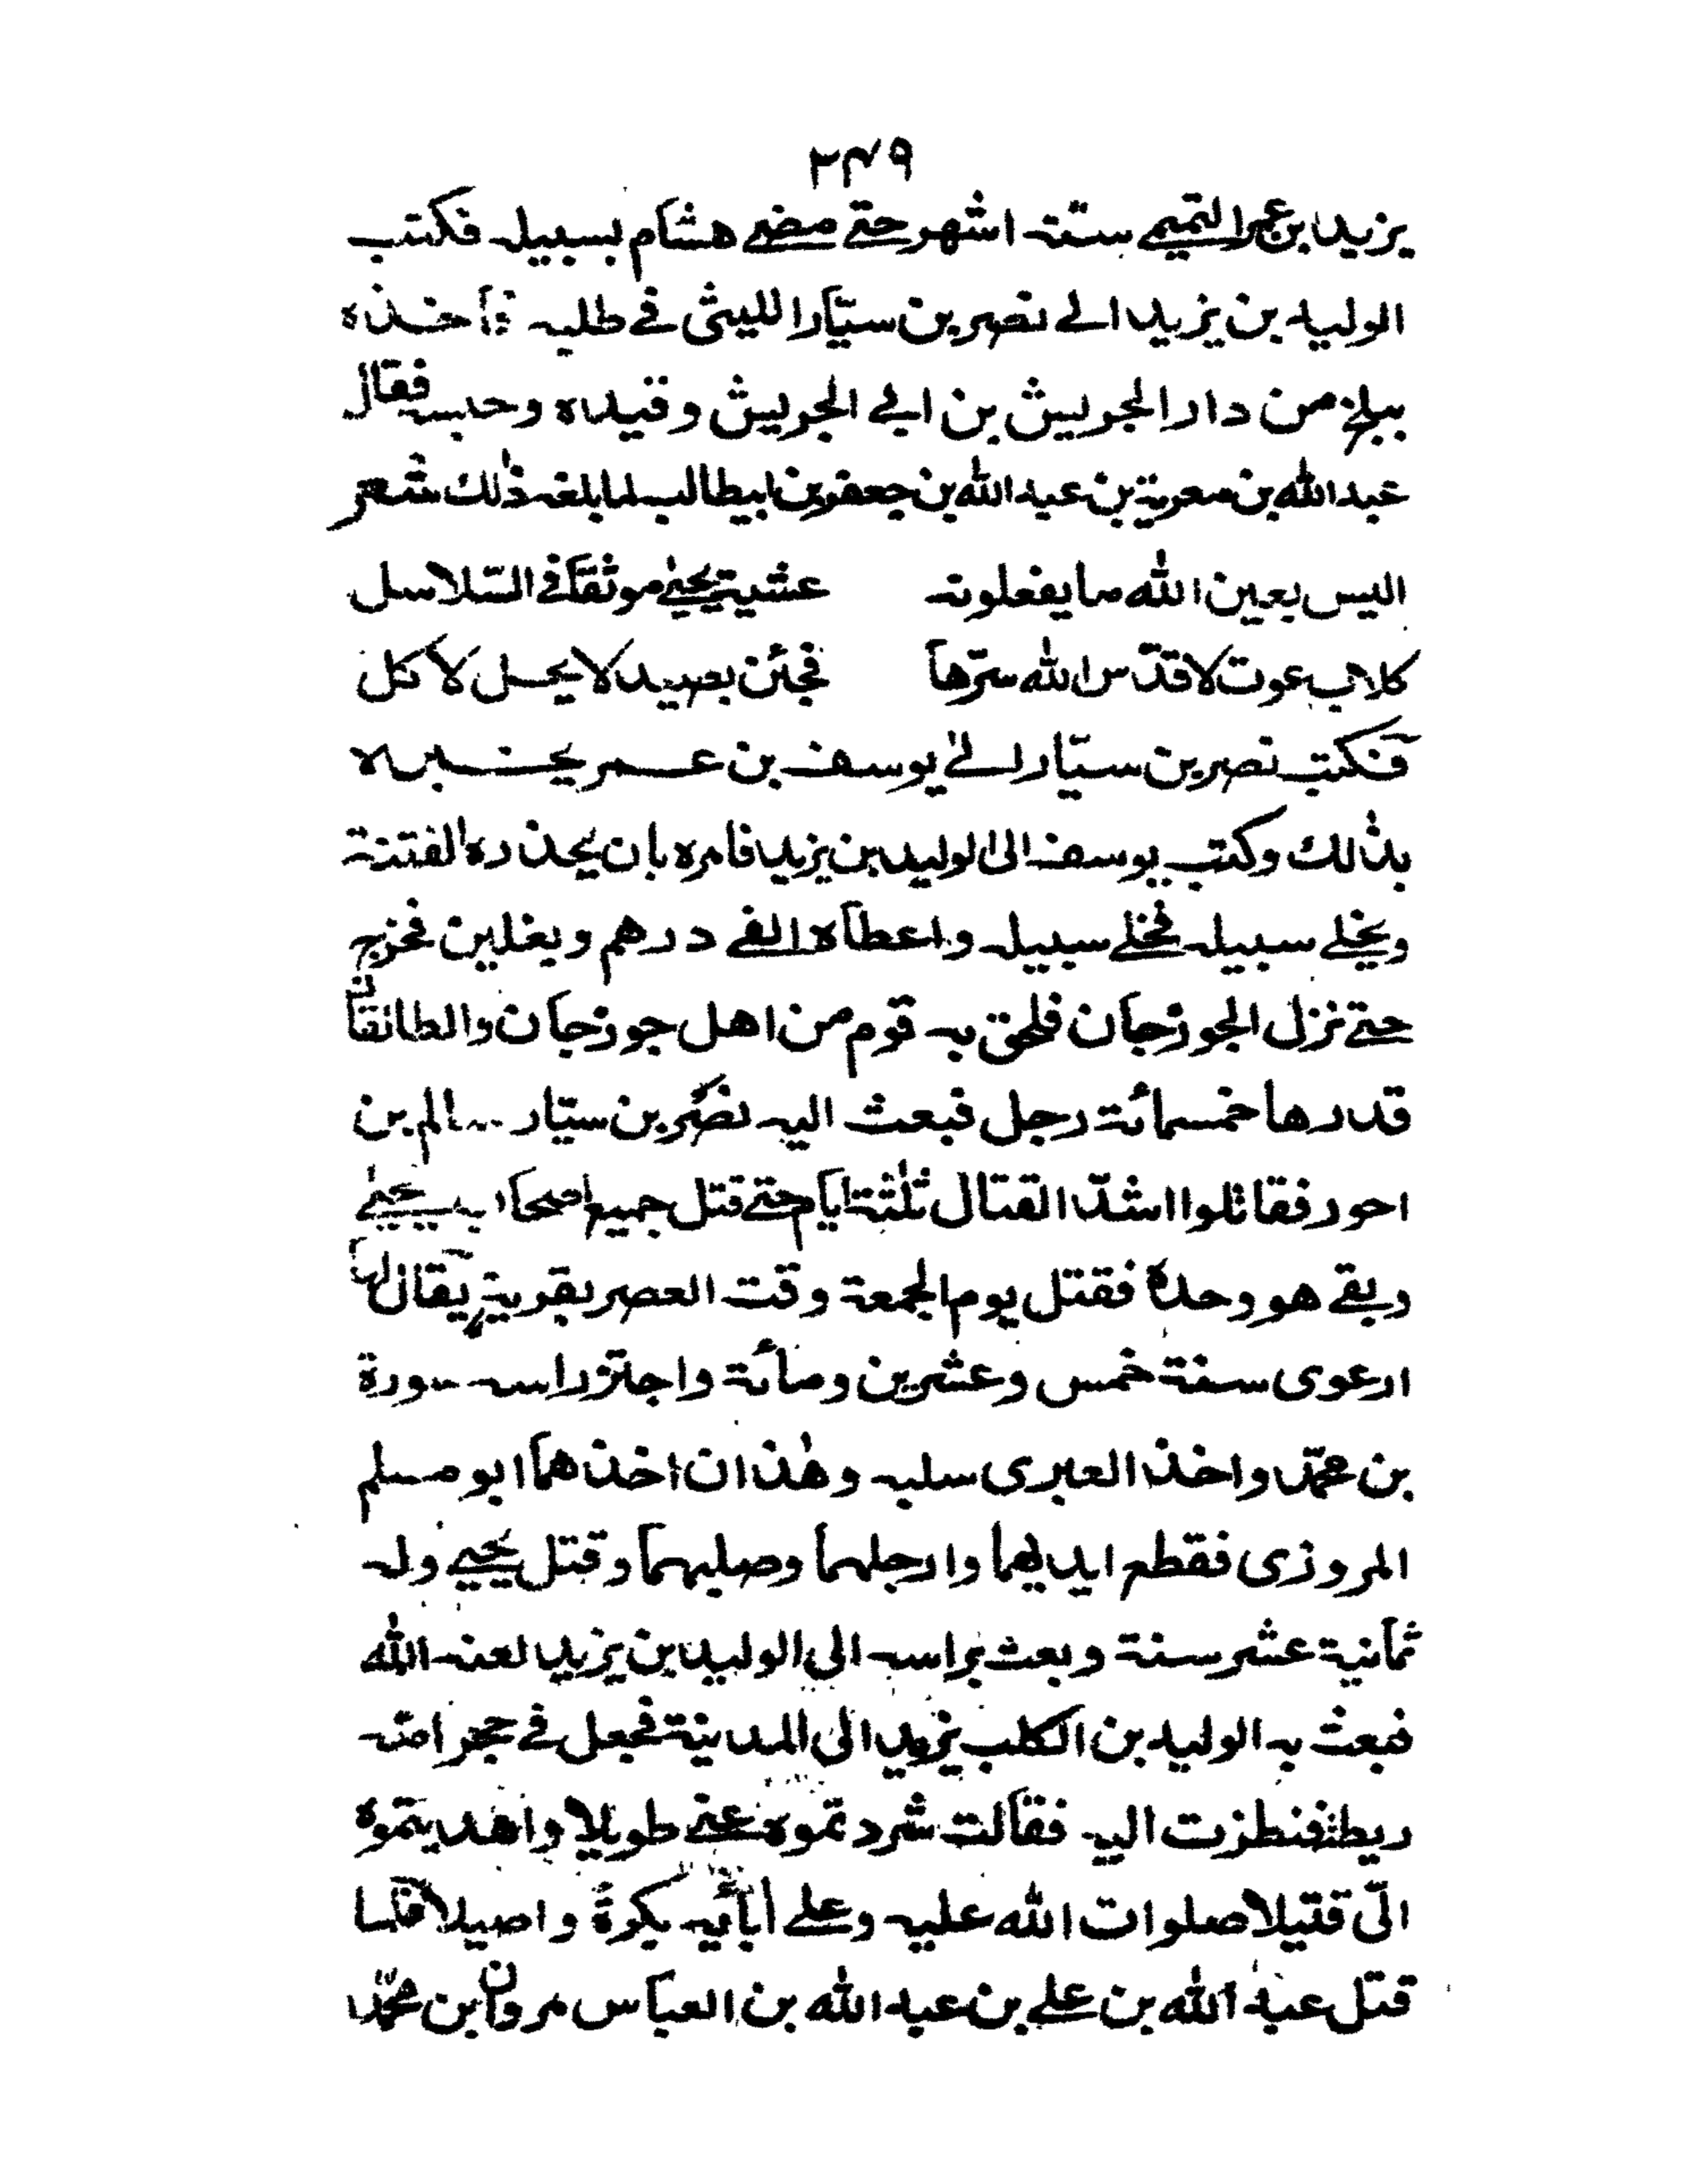 ٢٤٩
يزيد بن عمر التميمي ستة اشهر حتى مضى هشام بسبيله فكتب
الوليد بن يزيد الى نصر بن سيّار الليثى في طلبه فأخذه
ببلخ من دار الجريش بن ابي الجريش وقيده وحبسه فقال
عبد الله بن معوية بن عبد الله بن جعفر بن ابيطالب لما بلغه ذلك شعر
اليس بعين الله ما يفعلونه عشية يحيى موثقا فى السّلاسل
كلاب عوت لا قدّس الله سرّها فجئن بصيد لا يحل لآكل
فكتب نصر بن سيّار الى يوسف بن عمر يخبره
بذالك وكتب يوسف الى الوليد بن يزيد فامره بان يحذره الفتنة
ويخلي سبيله فخلي سبيله واعطاه الفي درهم وبغلين فخرج
حتى نزل الجوزجان فلحق به قوم من اهل جوزجان والطالقان
قدرها خمسمائة رجل فبعث اليه نصر بن سيّار سالم بن
احور فقاتلوا اشدّ القتال ثلثة ايام حتى قتل جميع اصحاب يحيى
وبقي هو وحده فقتل يوم الجمعة وقت العصر بقرية يقال لها
ارعوى سنة خمس وعشرين ومائة واجتز راسه سورة
بن محمّد واخذ العبرى سلبه وهذان اخذهما ابو مسلم
المروزى فقطع ايديهما وارجلهما وصلبهما وقتل يحيى وله
ثمانية عشر سنة وبعث براسه الى الوليد بن يزيد لعنه الله
فبعث به الوليد بن الكلب يزيد الى المدينة فجعل في حجر امّه
ريطة فنظرت اليه فقالت شردتموه عنى طويلا واهديتموه
الىّ قتيلا صلوات الله عليه وعلى أبآئه بكرةً واصيلا فلما
قتل عبد الله بن علي بن عبد الله بن العباس مروان بن محمّد